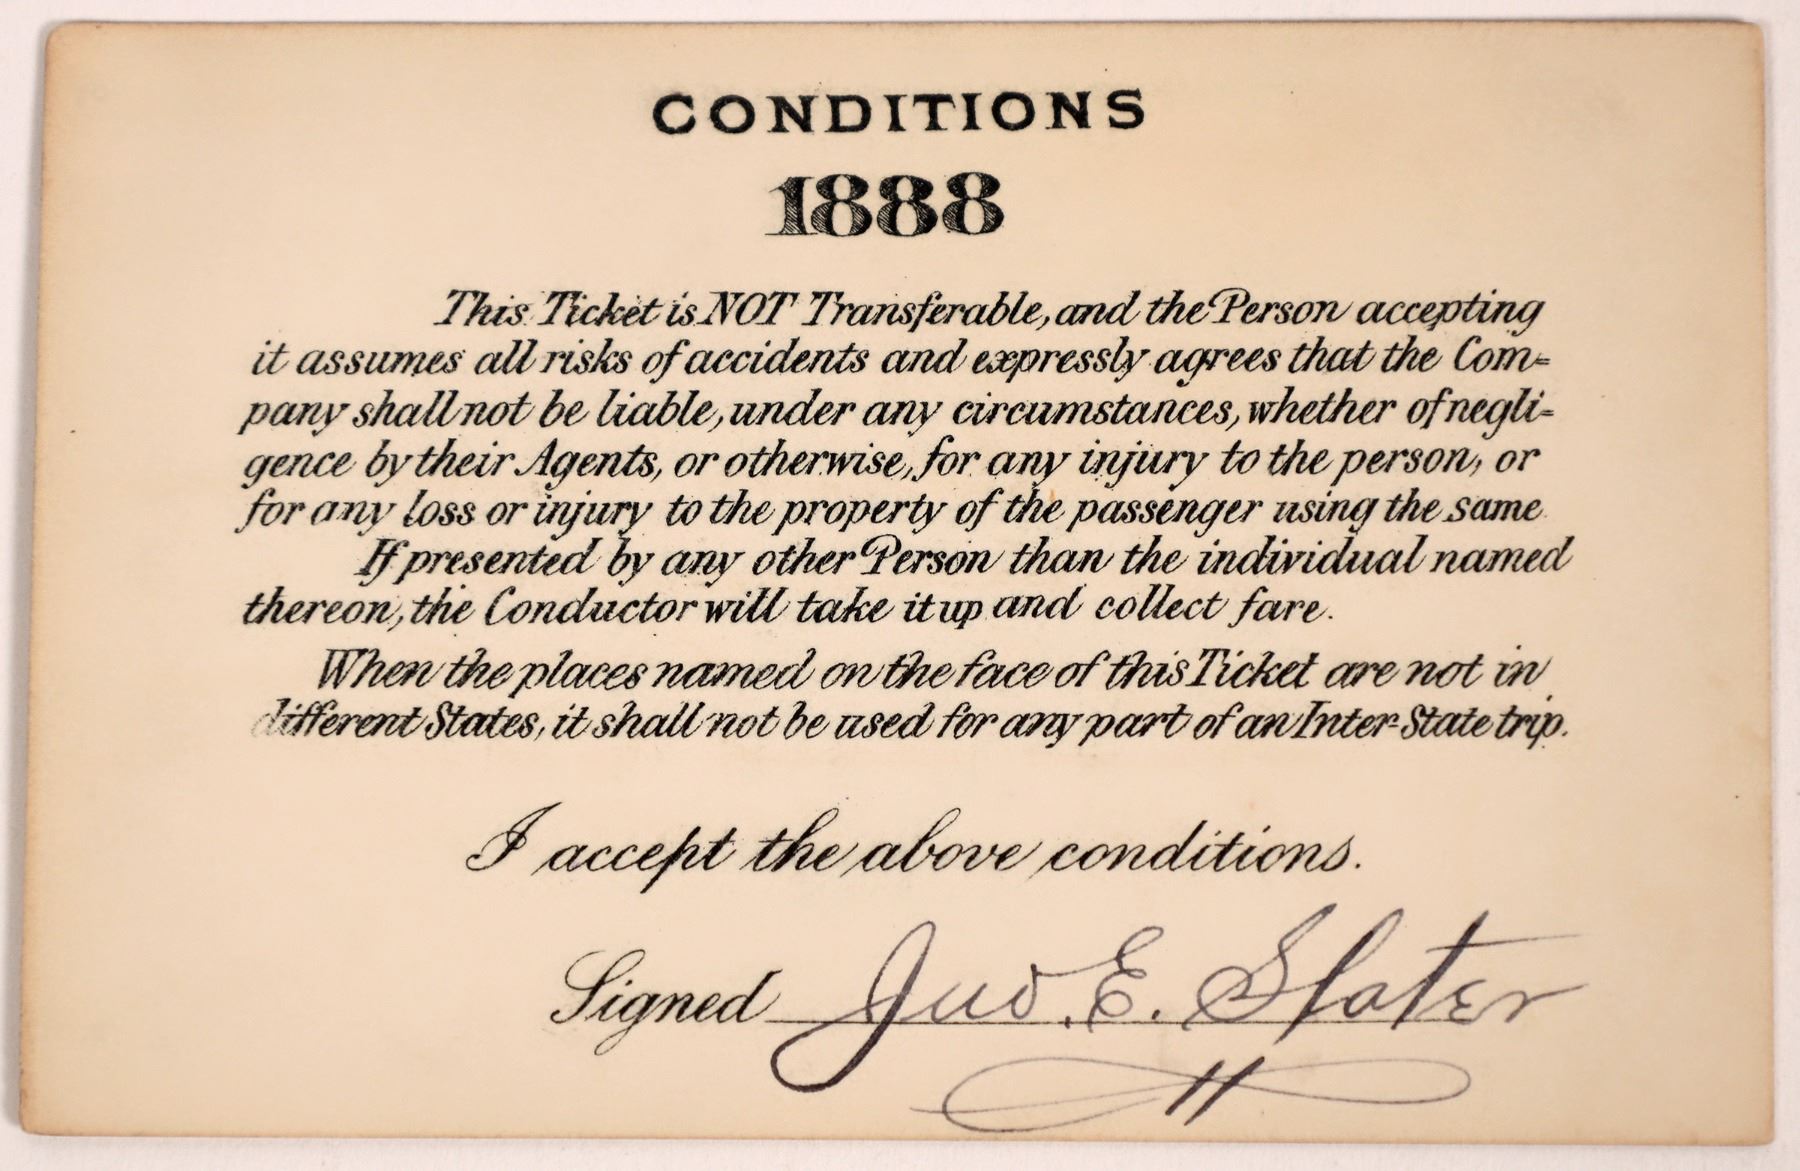 CONDITIONS
1888
This Ticket is NOT Transferable, and the Person accepting
it assumes all risks of accidents and expressly agrees that the Com=
pany shall not be liable, under any circumstances, whether of negli=
gence by their Agents, or otherwise, for any injury to the person, or
for any loss or injury to the property of the passenger using the same
If presented by any other Person than the individual named
thereon, the Conductor will take it up and collect fare.
When the places named on the face of this Ticket are not in
different States, it shall not be used for any part of an Inter=State trip.
I accept the above conditions.
Signed Jno. E. Slater